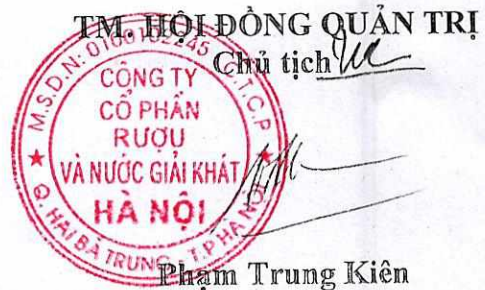 TM. HỘI ĐỒNG QUẢN TRỊ
Chủ tịch
M.S.D.N: C.T.C.P
CÔNG TY
CỔ PHẦN
RƯỢU
VÀ NƯỚC GIẢI KHÁT
HÀ NỘI
Q. HAI BÀ TRUNG - T.P HÀ NỘI
Phạm Trung Kiên